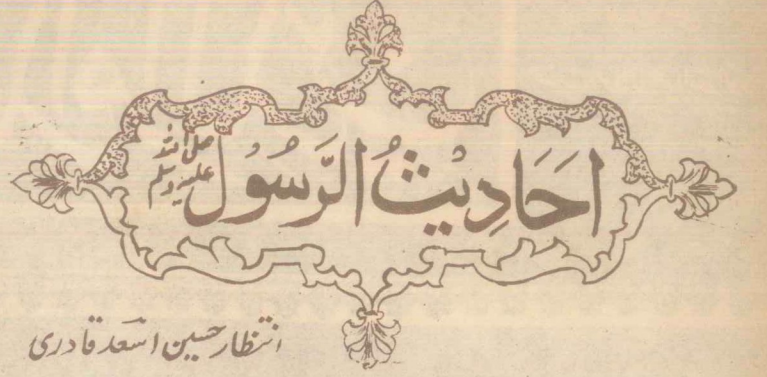 اَحَادِيْثُ الرَّسُوْل صلی اللہ علیہ وسلم
انتظار حسین اسعد قادری